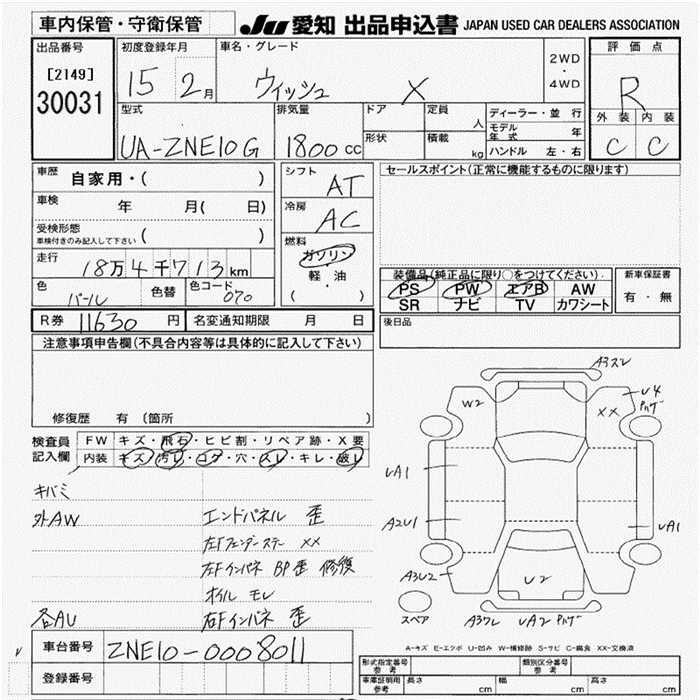 車内保管・守衛保管 JU 愛知 出品申込書 JAPAN USED CAR DEALERS ASSOCIATION
出品番号 初度登録年月 車名・グレード 2WD・4WD 評価点
[2149] 30031 15 2月 ウィッシュ X R
型式 排気量 ドア 定員 人 ディーラー・並行 外装 内装
モデル年式 年
UA-ZNE10G 1800cc 形状 積載 kg ハンドル 左・右 C C
車歴 自家用・( ) シフト AT セールスポイント(正常に機能するものに限ります)
車検 年 月( 日) 冷房 AC
受検形態 ( )
車検付きのみ記入して下さい
燃料 ガソリン
走行 18万4千713km 軽・油
( )
装備品(純正品に限り○をつけてください) 新車保証書
色 パール 色替 色コード 070 PS PW エアB AW 有・無
SR ナビ TV カワシート
R券 11630円 名変通知期限 月 日 後日品
注意事項申告欄(不具合内容等は具体的に記入して下さい)
修復歴 有 (箇所
検査員記入欄 FW キズ・飛石・ヒビ割・リペア跡・X要
内装 キズ・汚レ・コゲ・穴・スレ・キレ・破レ
キバミ
外AW エンドパネル 歪
左Fフェンダーステー XX
左Fインパネ BP歪 修復
オイル モレ
各AU 右Fインパネ 歪
A3スレ
W2 XX U4 ハガ
UA1
A2U1 UA1
A3U2 U2
スペア A3ワレ UA2 ハガ
A-キズ E-エクボ U-凹み W-補修跡 S-サビ C-腐食 XX-交換済
車台番号 ZNE10-0008011
登録番号
形式指定番号 参考 類別区分番号 参考
車庫証明用 参考 長さ cm 幅 cm 高さ cm